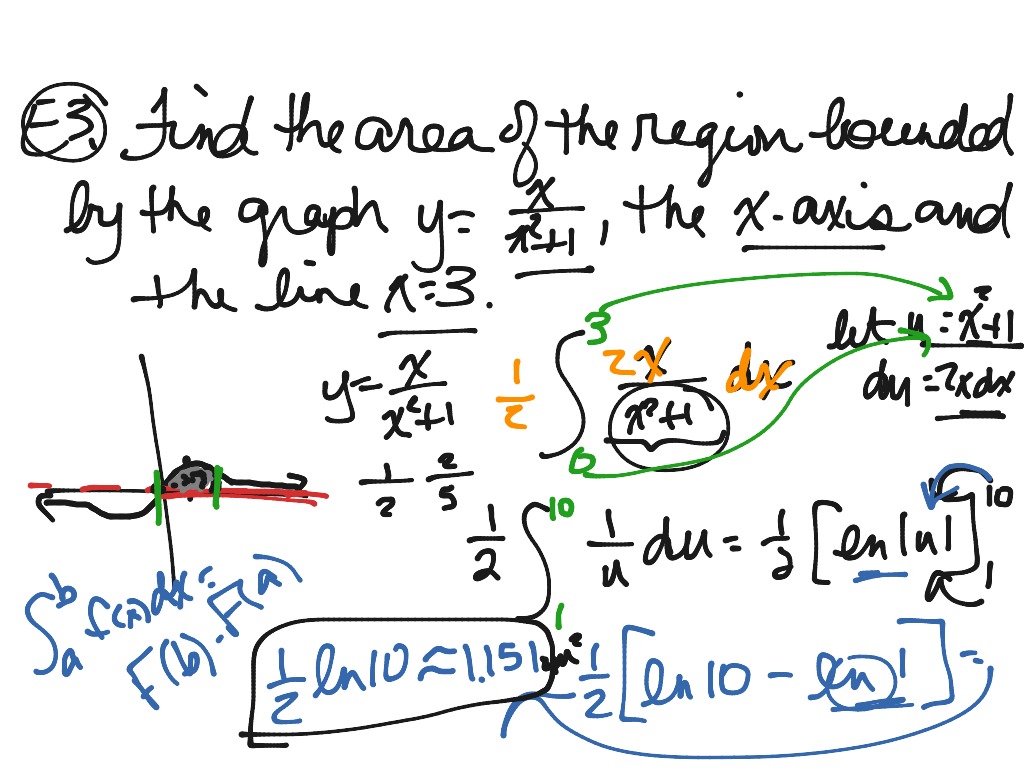 E3. Find the area of the region bounded
by the graph y = x/(x²+1), the x-axis and
the line x = 3.
y = x/(x²+1)
1/2 ∫₀³ 2x/(x²+1) dx
let u = x²+1
du = 2x dx
1/2 2/5
1/2 ∫₁¹⁰ 1/u du = 1/2 [ln|u|]₁¹⁰
∫ₐᵇ f(x) dx = F(b) - F(a)
1/2 [ln 10 - ln 1] =
1/2 ln 10 ≈ 1.151 un²